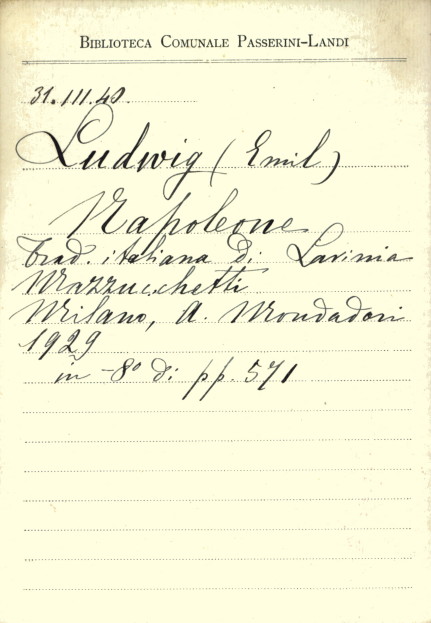 BIBLIOTECA COMUNALE PASSERINI-LANDI
31.III.40.
Ludwig (Emil)
Napoleone
Trad. italiana di Lavinia
Mazzucchetti
Milano, A. Mondadori
1929
in-8° di pp. 571